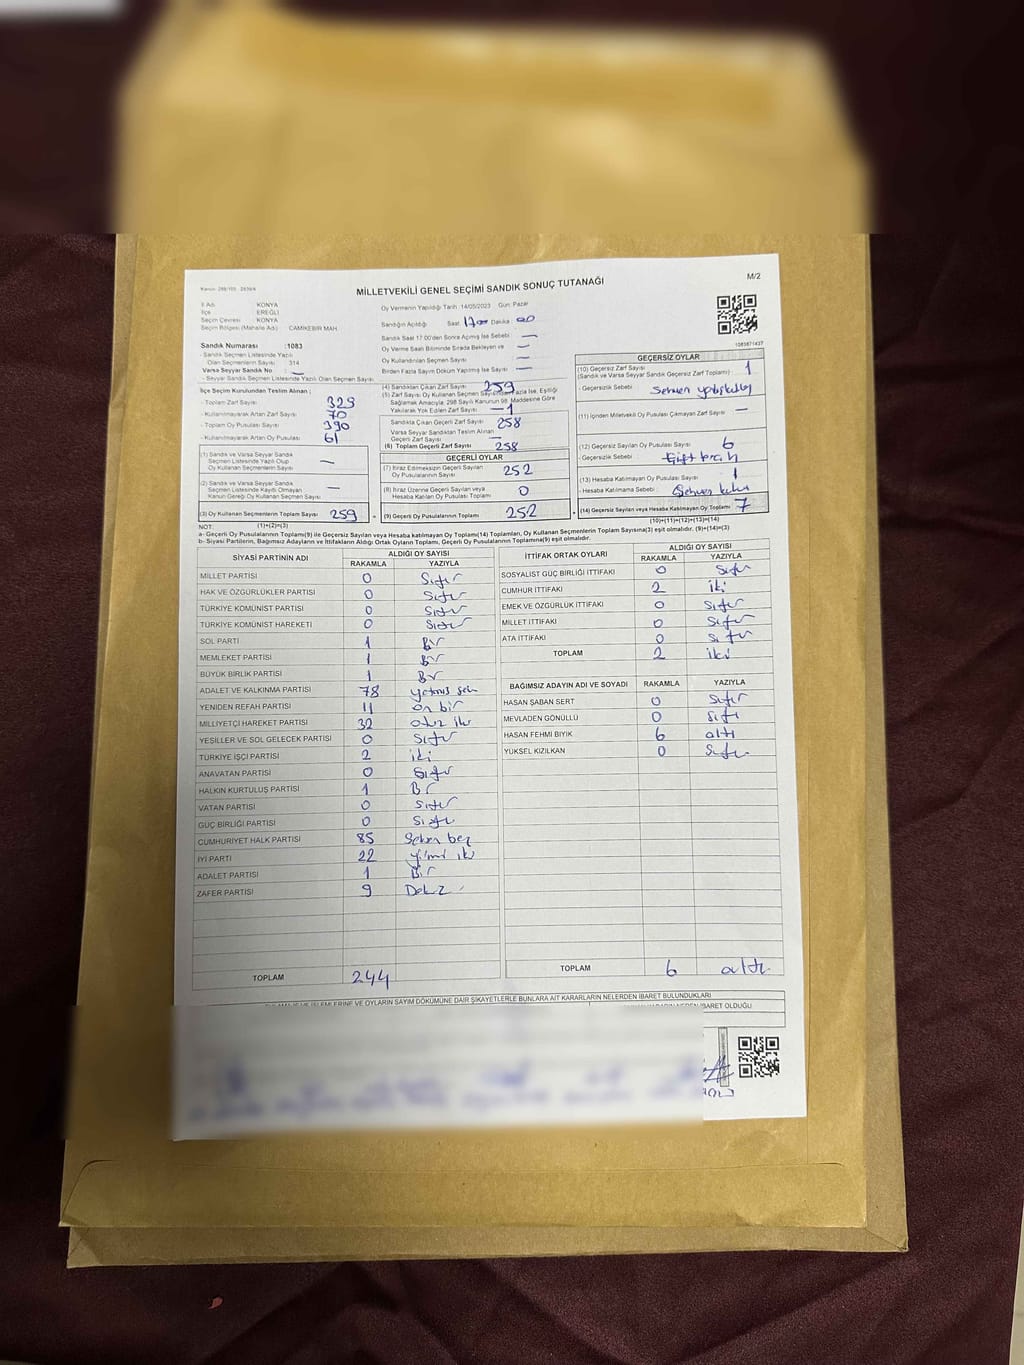 M/2
MİLLETVEKİLİ GENEL SEÇİMİ SANDIK SONUÇ TUTANAĞI
İl Adı KONYA
İlçe EREĞLİ
Seçim Çevresi KONYA
Seçim Bölgesi (Mahalle Adı) CAMİKEBİR MAH
Sandık Numarası :1083
- Sandık Seçmen Listesinde Yazılı
Olan Seçmenlerin Sayısı 314
Varsa Seyyar Sandık No : —
- Seyyar Sandık Seçmen Listesinde Yazılı Olan Seçmen Sayısı:
Oy Vermenin Yapıldığı Tarih :14/05/2023 Gün: Pazar
Sandığın Açıldığı Saat: 17 Dakika: 00
Sandık Saat 17:00'den Sonra Açılmış İse Sebebi: —
Oy Verme Saati Bitiminde Sırada Bekleyen ve —
Oy Kullandırılan Seçmen Sayısı —
Birden Fazla Sayım Döküm Yapılmış İse Sayısı —
1083871437
İlçe Seçim Kurulundan Teslim Alınan ;
- Toplam Zarf Sayısı 329
- Kullanılmayarak Artan Zarf Sayısı 70
- Toplam Oy Pusulası Sayısı 390
- Kullanılmayarak Artan Oy Pusulası 61
(1) Sandık ve Varsa Seyyar Sandık
Seçmen Listesinde Yazılı Olup
Oy Kullanan Seçmenlerin Sayısı —
(2) Sandık ve Varsa Seyyar Sandık
Seçmen Listesinde Kayıtlı Olmayan
Kanun Gereği Oy Kullanan Seçmen Sayısı —
(3) Oy Kullanan Seçmenlerin Toplam Sayısı 259
(4) Sandıktan Çıkan Zarf Sayısı 259
(5) Zarf Sayısı Oy Kullanan Seçmen Sayısından Fazla İse, Eşitliği
Sağlamak Amacıyla; 298 Sayılı Kanunun 98. Maddesine Göre
Yakılarak Yok Edilen Zarf Sayısı —1
Sandıkta Çıkan Geçerli Zarf Sayısı 258
Varsa Seyyar Sandıktan Teslim Alınan
Geçerli Zarf Sayısı —
(6) Toplam Geçerli Zarf Sayısı 258
GEÇERLİ OYLAR
(7) İtiraz Edilmeksizin Geçerli Sayılan
Oy Pusulalarının Sayısı 252
(8) İtiraz Üzerine Geçerli Sayılan veya
Hesaba Katılan Oy Pusulası Toplamı 0
(9) Geçerli Oy Pusulalarının Toplamı 252
GEÇERSİZ OYLAR
(10) Geçersiz Zarf Sayısı 1
(Sandık ve Varsa Seyyar Sandık Geçersiz Zarf Toplamı)
- Geçersizlik Sebebi Sehven
(11) İçinden Milletvekili Oy Pusulası Çıkmayan Zarf Sayısı —
(12) Geçersiz Sayılan Oy Pusulası Sayısı 6
- Geçersizlik Sebebi
(13) Hesaba Katılmayan Oy Pusulası Sayısı 1
- Hesaba Katılmama Sebebi Sehven
(14) Geçersiz Sayılan veya Hesaba Katılmayan Oy Toplamı 7
NOT: (1)+(2)=(3) (10)+(11)+(12)+(13)=(14)
a- Geçerli Oy Pusulalarının Toplamı(9) ile Geçersiz Sayılan veya Hesaba Katılmayan Oy Toplamı(14) Toplamları, Oy Kullanan Seçmenlerin Toplam Sayısına(3) eşit olmalıdır. (9)+(14)=(3)
b- Siyasi Partilerin, Bağımsız Adayların ve İttifakların Aldığı Ortak Oyların Toplamı, Geçerli Oy Pusulalarının Toplamına(9) eşit olmalıdır.
SİYASİ PARTİNİN ADI ALDIĞI OY SAYISI
RAKAMLA YAZIYLA
MİLLET PARTİSİ 0 Sıfır
HAK VE ÖZGÜRLÜKLER PARTİSİ 0 Sıfır
TÜRKİYE KOMÜNİST PARTİSİ 0 Sıfır
TÜRKİYE KOMÜNİST HAREKETİ 0 Sıfır
SOL PARTİ 1 Bir
MEMLEKET PARTİSİ 1 Bir
BÜYÜK BİRLİK PARTİSİ 1 Bir
ADALET VE KALKINMA PARTİSİ 78 yetmiş sek
YENİDEN REFAH PARTİSİ 11 on bir
MİLLİYETÇİ HAREKET PARTİSİ 32 otuz iki
YEŞİLLER VE SOL GELECEK PARTİSİ 0 Sıfır
TÜRKİYE İŞÇİ PARTİSİ 2 iki
ANAVATAN PARTİSİ 0 Sıfır
HALKIN KURTULUŞ PARTİSİ 1 Bir
VATAN PARTİSİ 0 Sıfır
GÜÇ BİRLİĞİ PARTİSİ 0 Sıfır
CUMHURİYET HALK PARTİSİ 85 Seksen beş
İYİ PARTİ 22 yirmi iki
ADALET PARTİSİ 1 Bir
ZAFER PARTİSİ 9 Dokuz
TOPLAM 244
İTTİFAK ORTAK OYLARI ALDIĞI OY SAYISI
RAKAMLA YAZIYLA
SOSYALİST GÜÇ BİRLİĞİ İTTİFAKI 0 Sıfır
CUMHUR İTTİFAKI 2 iki
EMEK VE ÖZGÜRLÜK İTTİFAKI 0 Sıfır
MİLLET İTTİFAKI 0 Sıfır
ATA İTTİFAKI 0 Sıfır
TOPLAM 2 iki
BAĞIMSIZ ADAYIN ADI VE SOYADI RAKAMLA YAZIYLA
HASAN ŞABAN SERT 0 Sıfır
MEVLADEN GÖNÜLLÜ 0 Sıfır
HASAN FEHMİ BIYIK 6 altı
YÜKSEL KIZILKAN 0 Sıfır
TOPLAM 6 altı
İŞLEMLERİNE VE OYLARIN SAYIM DÖKÜMÜNE DAİR ŞİKAYETLERLE BUNLARA AİT KARARLARIN NELERDEN İBARET BULUNDUKLARI
İBARET OLDUĞU